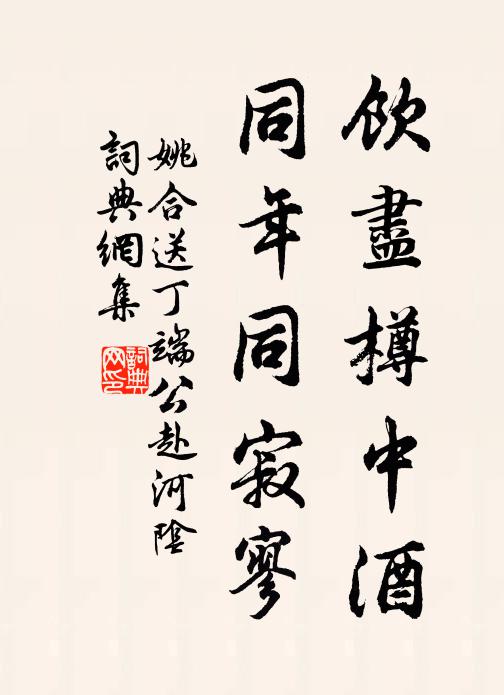 飲盡樽中酒
同年同寂寥
姚合送丁端公赴河陰
詞典網集
詞典
网印